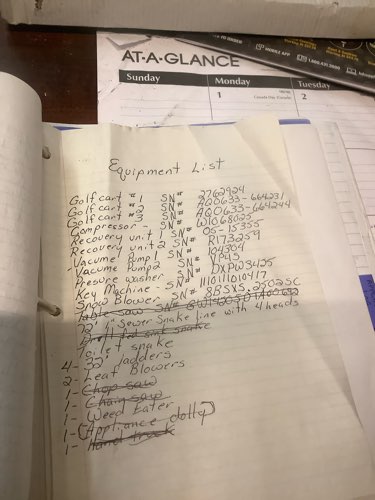 AT-A-GLANCE
Sunday
Monday
Tuesday
1
Canada Day (Canada)
2
MOBILE APP
Equipment List
Golf cart #1 SN# 2762924
Golf cart #2 SN# AQ0633-664231
Golf cart #3 SN# AQ0633-664244
Compressor - SN# W1068025
Recovery unit 1 SN# 05-15355
Recovery unit 2 SN# R173259
-Vacume Pump 1 SN# 104904
-Vacume Pump 2 SN#
Pressure washer SN# DXPW3425
Key Machine - SN# 111011010417
Snow Blower SN# 8BSXS.2502SC
Table saw SN#
72' 4" Sewer Snake line with 4 heads
Drill fed sink snake
Toilet snake
4 - 32' ladders
2 - Leaf Blowers
1 - Chop saw
1 - Chain saw
1 - Weed Eater
1 - (Appliance dolly)
1 - hand truck